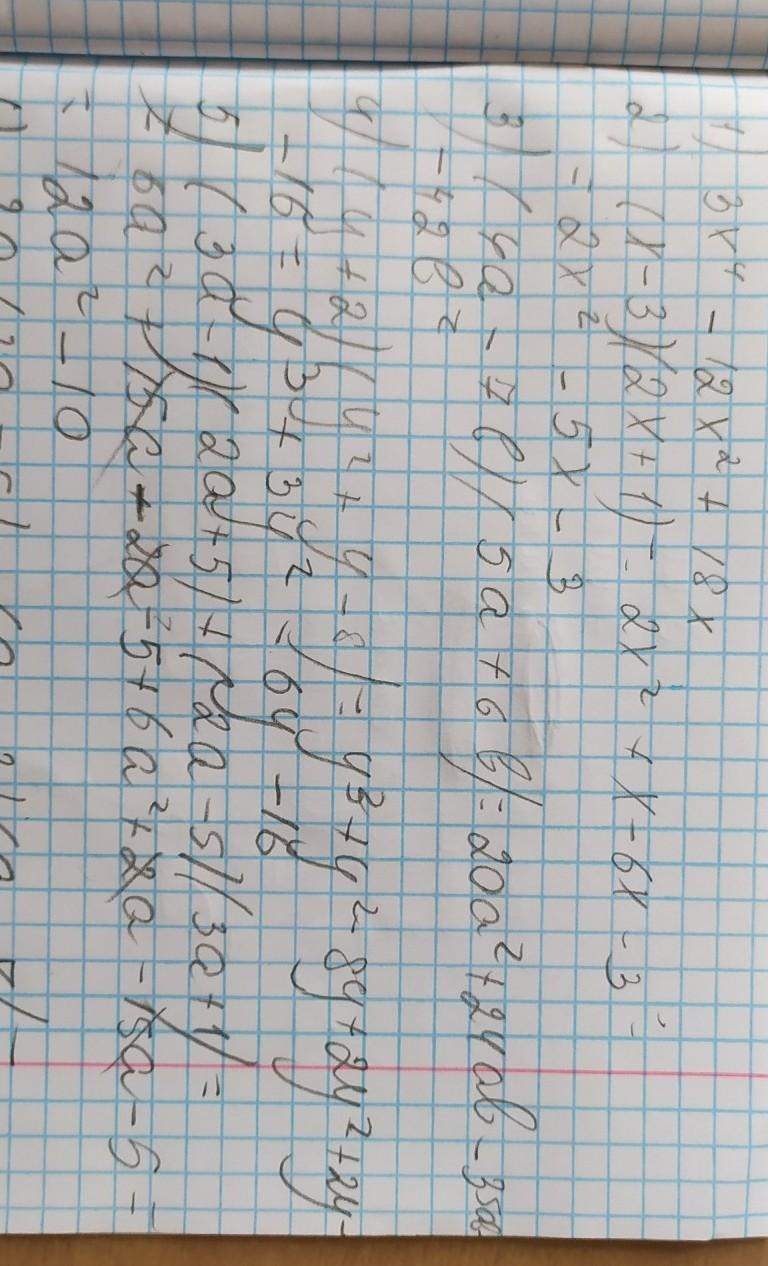 1) 3x⁴ - 12x² + 18x
2) (x-3)(2x+1) = 2x² + x - 6x - 3 =
= 2x² - 5x - 3
3) (4a - 7b)(5a + 6b) = 20a² + 24ab - 35a
-42b²
4) (y+2)(y² + y - 8) = y³ + y² - 8y + 2y² + 2y -
-16 = y³ + 3y² - 6y - 16
5) (3a-1)(2a+5) + (2a-5)(3a+1) =
= 6a² + 15a - 2a - 5 + 6a² + 2a - 15a - 5 =
= 12a² - 10